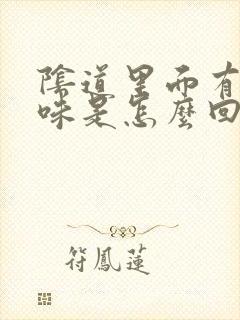 陰道里而有
味是怎麼回
符鳳蓮